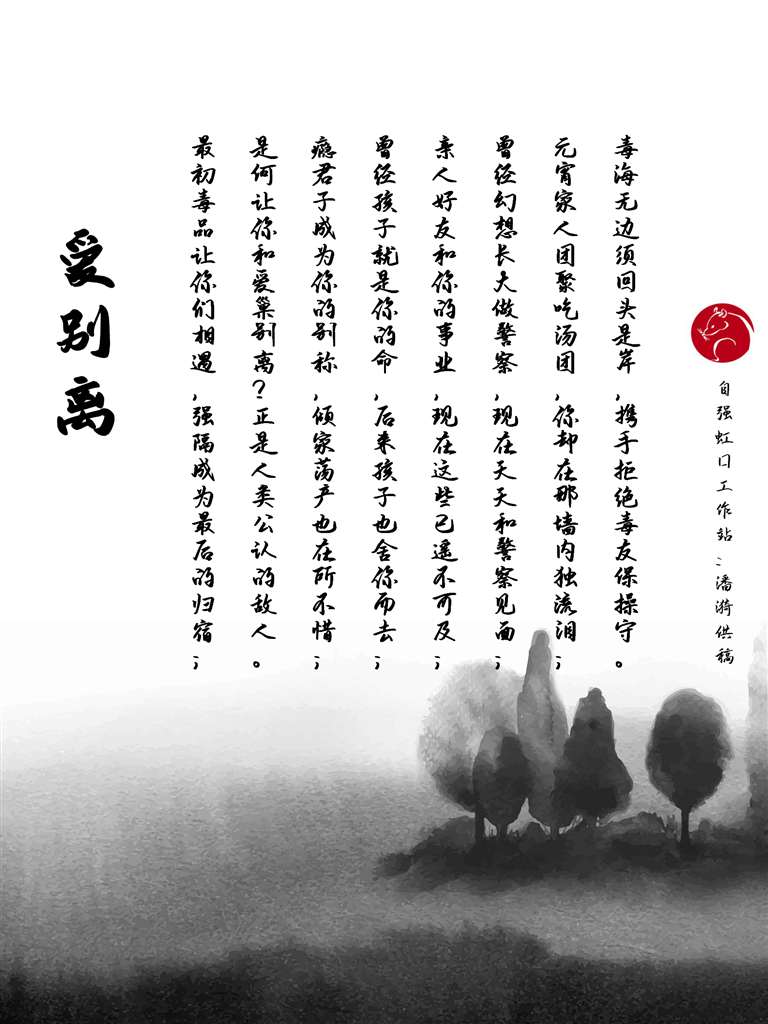 爱别离
最初毒品让你们相遇,强隔成为最后的归宿;
是何让你和爱巢别离?正是人类公认的敌人。
瘾君子成为你的别称,倾家荡产也在所不惜;
曾经孩子就是你的命,后来孩子也舍你而去;
亲人好友和你的事业,现在这些已遥不可及;
曾经幻想长大做警察,现在天天和警察见面;
元宵家人团聚吃汤团,你却在那墙内独流泪;
毒海无边须回头是岸,携手拒绝毒友保操守。
自强虹口工作站:潘漪供稿